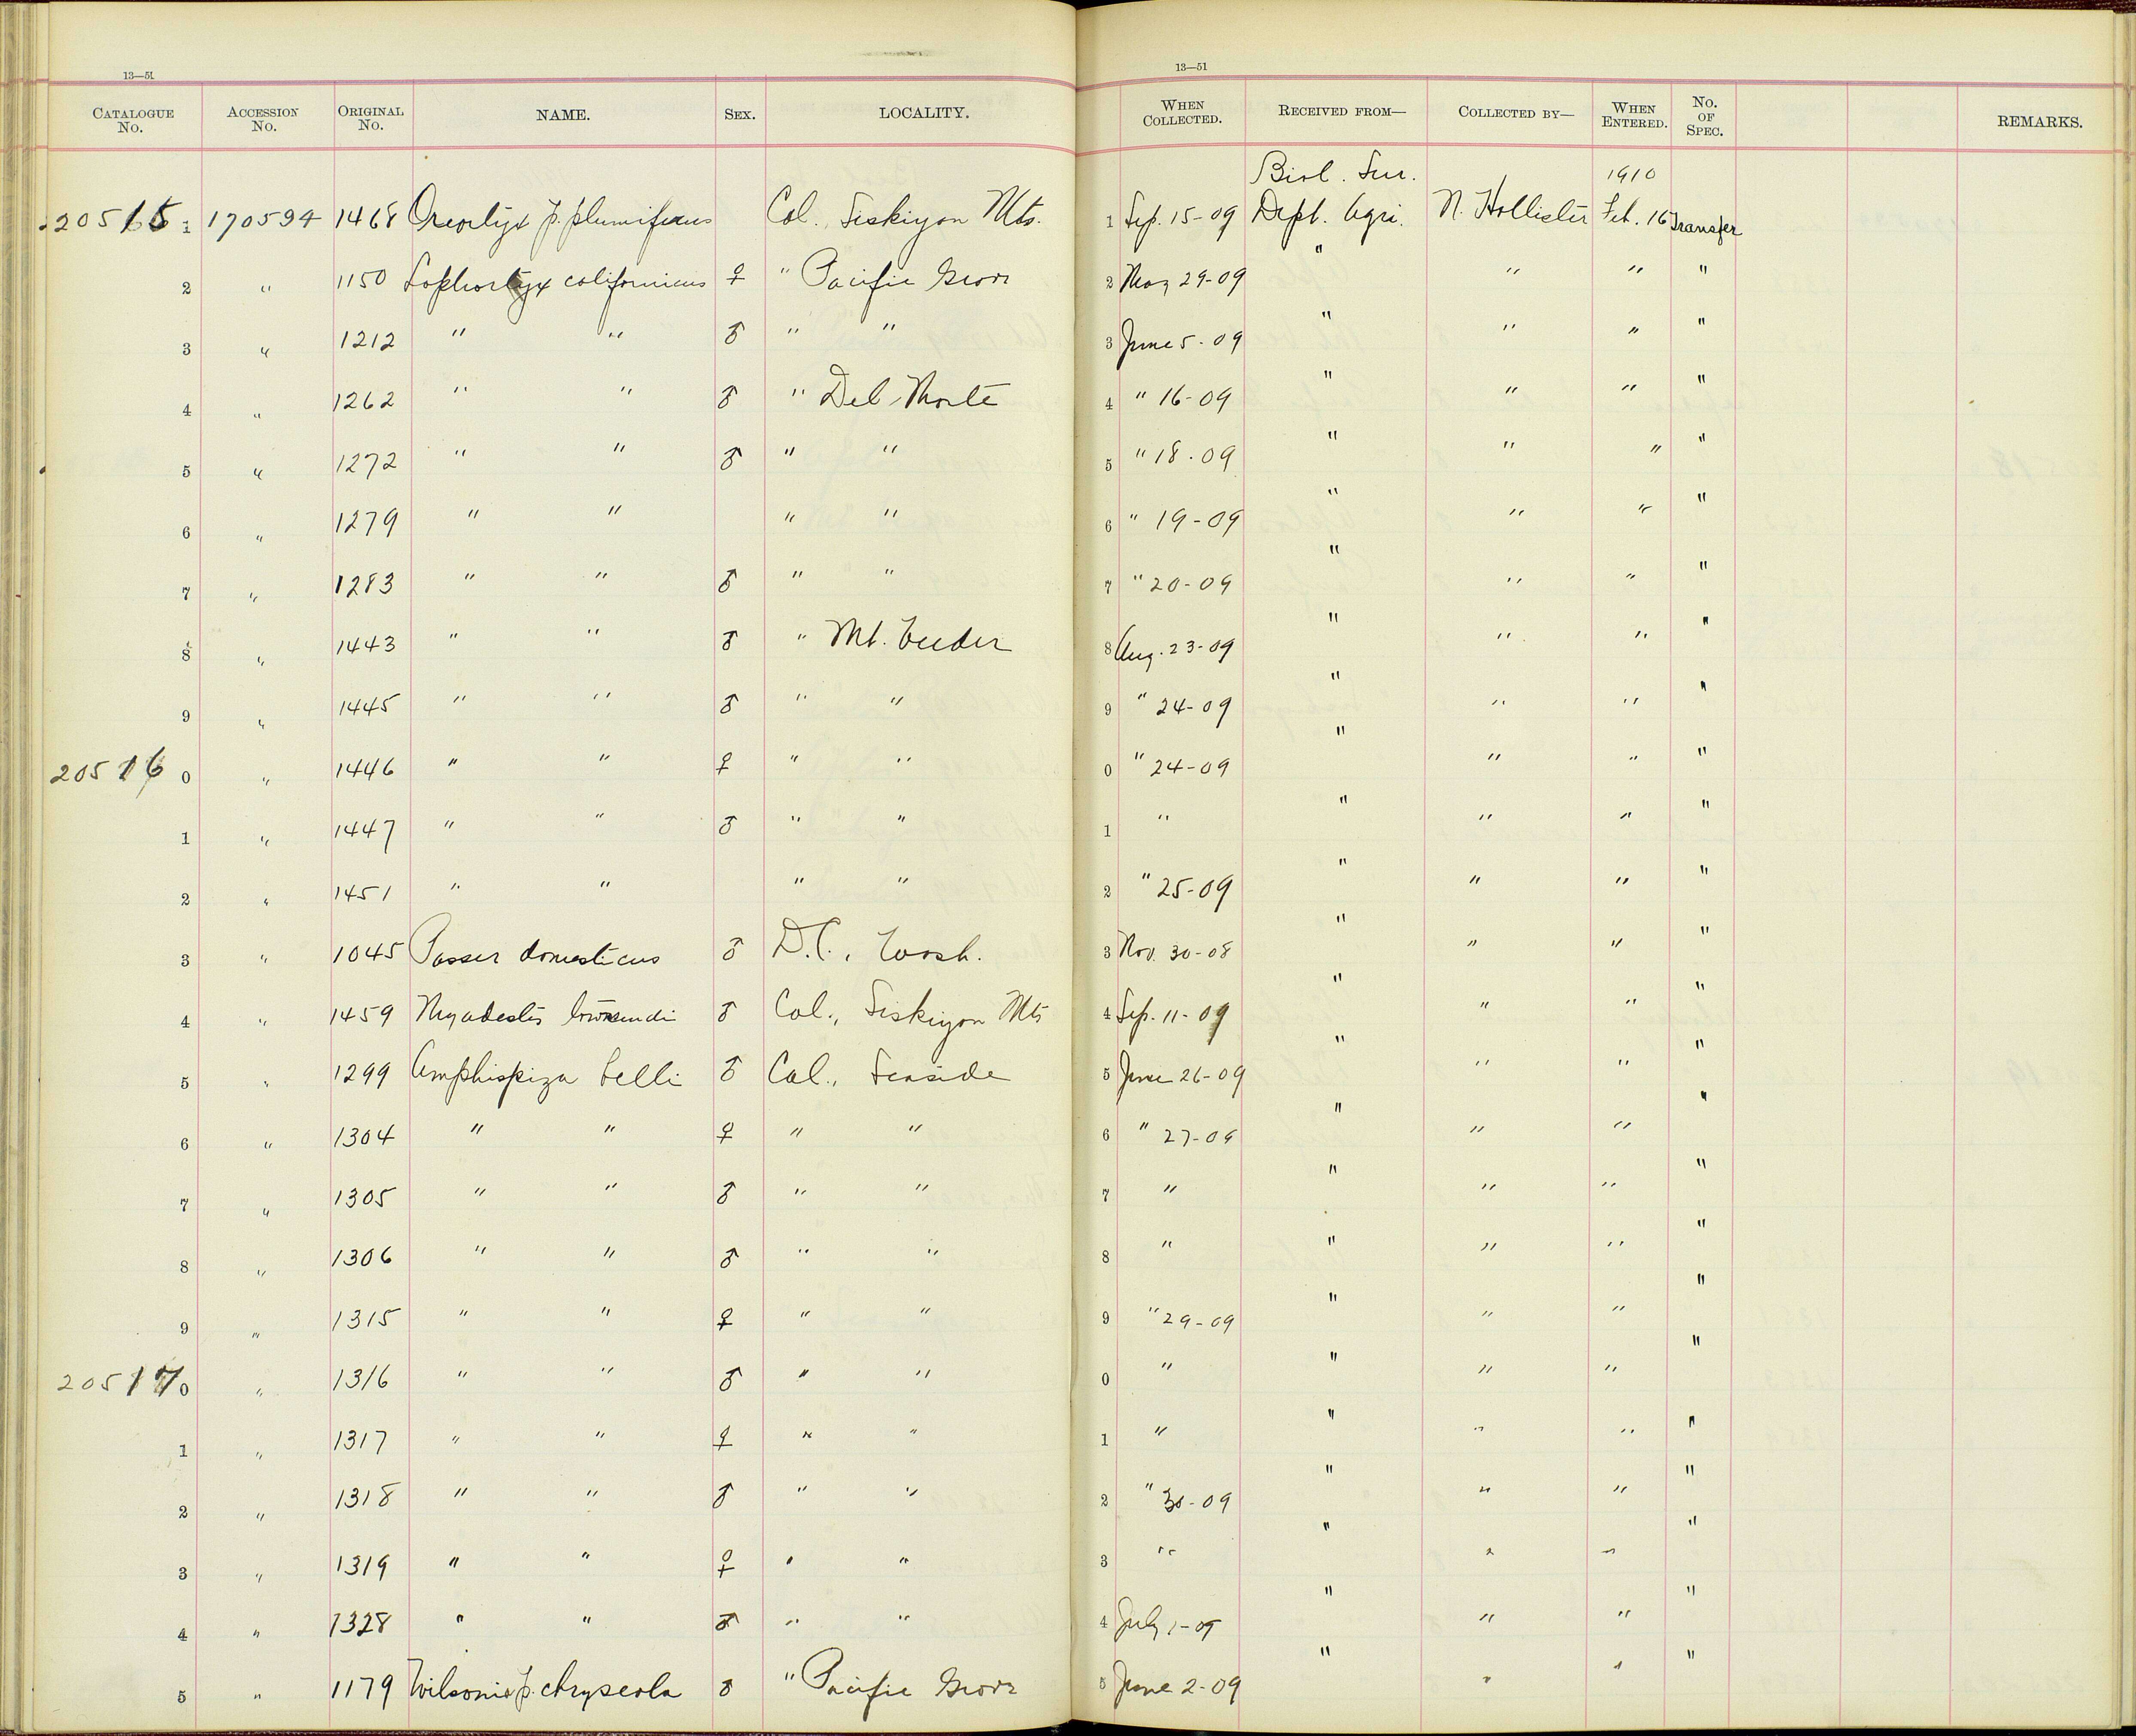 13—51 13—51
CATALOGUE No. ACCESSION No. ORIGINAL No. NAME. SEX. LOCALITY. WHEN COLLECTED. RECEIVED FROM— COLLECTED BY— WHEN ENTERED. No. OF SPEC. REMARKS.
Biol. Sur. 1910
20515 1 170594 1468 Oreortyx p. plumiferus Cal., Siskiyou Mts. 1 Sep. 15-09 Dept. Agri. N. Hollister Feb. 16 Transfer
2 " 1150 Lophortyx californicus ♀ " Pacific Grove 2 May 29-09 " " " "
3 " 1212 " " ♂ " " 3 June 5-09 " " " "
4 " 1262 " " ♂ " Del Monte 4 " 16-09 " " " "
5 " 1272 " " ♂ " " 5 " 18-09 " " " "
6 " 1279 " " " " 6 " 19-09 " " " "
7 " 1283 " " ♂ " " 7 " 20-09 " " " "
8 " 1443 " " ♂ " Mt. Veeder 8 Aug. 23-09 " " " "
9 " 1445 " " ♂ " " 9 " 24-09 " " " "
20516 0 " 1446 " " ♀ " " 0 " 24-09 " " " "
1 " 1447 " " ♂ " " 1 " " " " "
2 " 1451 " " " " 2 " 25-09 " " " "
3 " 1045 Passer domesticus ♂ D.C., Wash. 3 Nov. 30-08 " " " "
4 " 1459 Myadestes townsendi ♂ Cal., Siskiyou Mts 4 Sep. 11-09 " " " "
5 " 1299 Amphispiza belli ♂ Cal., Seaside 5 June 26-09 " " " "
6 " 1304 " " ♀ " " 6 " 27-09 " " " "
7 " 1305 " " ♂ " " 7 " " " " "
8 " 1306 " " ♂ " " 8 " " " " "
9 " 1315 " " ♀ " " 9 " 29-09 " " " "
20517 0 " 1316 " " ♂ " " 0 " " " " "
1 " 1317 " " ♀ " " 1 " " " " "
2 " 1318 " " ♂ " " 2 " 30-09 " " " "
3 " 1319 " " ♀ " " 3 " " " " "
4 " 1328 " " ♂ " " 4 July 1-09 " " " "
5 " 1179 Wilsonia p. chryseola ♂ " Pacific Grove 5 June 2-09 " " " "